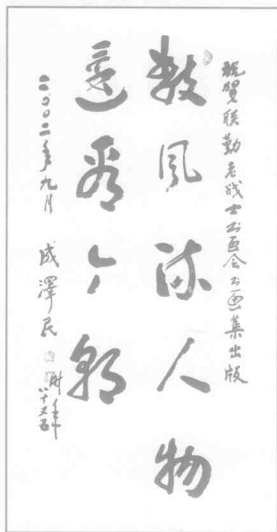 祝贺联勤老战士书画会书画集出版
数风流人物
还看今朝
二〇〇二年九月 成泽民
时年八十又五